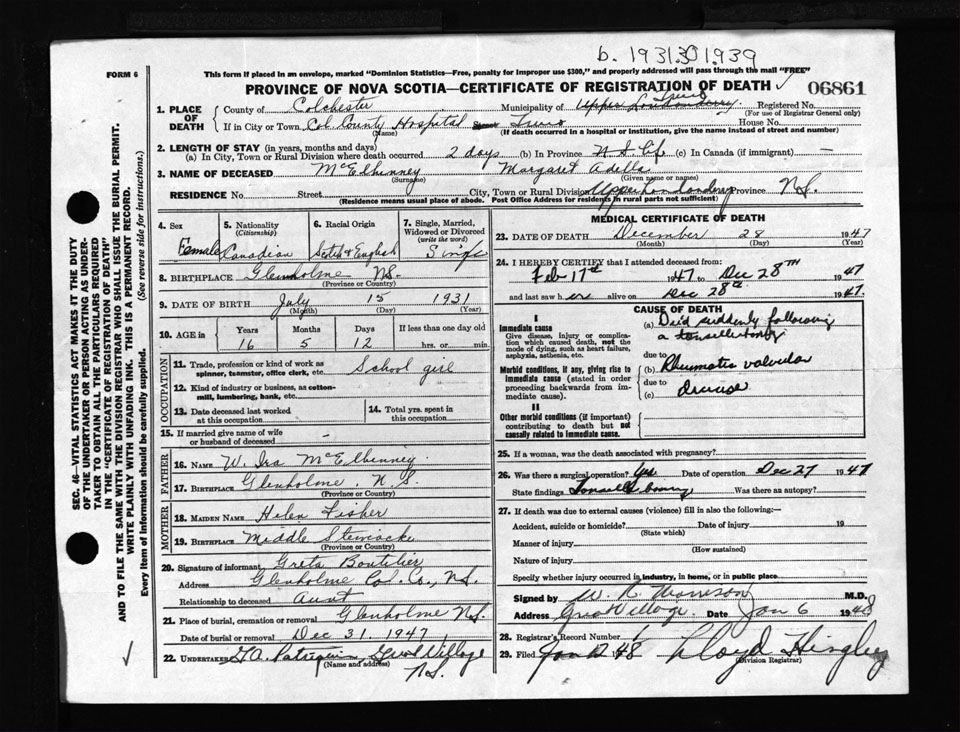 b. 1931 30 1939
FORM 6
This form if placed in an envelope, marked "Dominion Statistics—Free, penalty for improper use $300," and properly addressed will pass through the mail "FREE"
PROVINCE OF NOVA SCOTIA—CERTIFICATE OF REGISTRATION OF DEATH 06861
1. PLACE OF DEATH
County of Colchester Municipality of Upper Londonderry Truro Registered No.
(For use of Registrar General only)
If in City or Town Col. County Hospital Street Truro House No.
(Name) (If death occurred in a hospital or institution, give the name instead of street and number)
2. LENGTH OF STAY (in years, months and days)
(a) In City, Town or Rural Division where death occurred 2 days (b) In Province N S Life (c) In Canada (if immigrant) —
3. NAME OF DECEASED McElhinney Margaret Adella
(Surname) (Given name or names)
RESIDENCE No Street City, Town or Rural Division Upper Londonderry Province N.S.
(Residence means usual place of abode. Post Office Address for residents in rural parts not sufficient)
4. Sex
Female
5. Nationality
(Citizenship)
Canadian
6. Racial Origin
Scotch & English
7. Single, Married, Widowed or Divorced
(write the word)
Single
8. BIRTHPLACE Glenholme N.S.
(Province or Country)
9. DATE OF BIRTH July 15 1931
(Month) (Day) (Year)
10. AGE in
Years Months Days If less than one day old
16 5 12 hrs. or min.
OCCUPATION
11. Trade, profession or kind of work as spinner, teamster, office clerk, etc. School girl
12. Kind of industry or business, as cotton-mill, lumbering, bank, etc.
13. Date deceased last worked at this occupation
14. Total yrs. spent in this occupation
15. If married give name of wife or husband of deceased —
FATHER
16. NAME W. Ira McElhinney
17. BIRTHPLACE Glenholme, N.S.
(Province or Country)
MOTHER
18. MAIDEN NAME Helen Fisher
19. BIRTHPLACE Middle Stewiacke
(Province or Country)
20. Signature of informant Greta Boutilier
Address Glenholme Col. Co., N.S.
Relationship to deceased Aunt
21. Place of burial, cremation or removal Glenholme N.S.
Date of burial or removal Dec 31. 1947
22. UNDERTAKER Patriquin Great Village
(Name and address) N.S.
MEDICAL CERTIFICATE OF DEATH
23. DATE OF DEATH December 28 1947
(Month) (Day) (Year)
24. I HEREBY CERTIFY that I attended deceased from:
Feb 17th 1947 to Dec 28TH 1947
and last saw her alive on Dec 28th 1947.
CAUSE OF DEATH
I
Immediate cause
Give disease, injury or complication which caused death, not the mode of dying, such as heart failure, asphyxia, asthenia, etc.
(a) Died suddenly following a tonsillectomy
due to
Morbid conditions, if any, giving rise to immediate cause (stated in order proceeding backwards from immediate cause).
(b) Rheumatic valvular
due to
(c) disease
II
Other morbid conditions (if important) contributing to death but not causally related to immediate cause.
25. If a woman, was the death associated with pregnancy?
26. Was there a surgical operation? Yes Date of operation Dec 27 1947
State findings Was there an autopsy?
27. If death was due to external causes (violence) fill in also the following:—
Accident, suicide or homicide? Date of injury 19
(State which)
Manner of injury
(How sustained)
Nature of injury
Specify whether injury occurred in industry, in home, or in public place
Signed by W. R. Morrison M.D.
Address Great Village Date Jan 6 1948
28. Registrar's Record Number 1
29. Filed Jan 12 1948 Lloyd Hingley
(Division Registrar)
SEC. 46—VITAL STATISTICS ACT MAKES IT THE DUTY OF THE UNDERTAKER OR PERSON ACTING AS UNDERTAKER TO OBTAIN ALL THE PARTICULARS REQUIRED IN THE "CERTIFICATE OF REGISTRATION OF DEATH" (See reverse side for instructions.)
AND TO FILE THE SAME WITH THE DIVISION REGISTRAR WHO SHALL ISSUE THE BURIAL PERMIT.
WRITE PLAINLY WITH UNFADING INK. THIS IS A PERMANENT RECORD.
Every item of information should be carefully supplied.